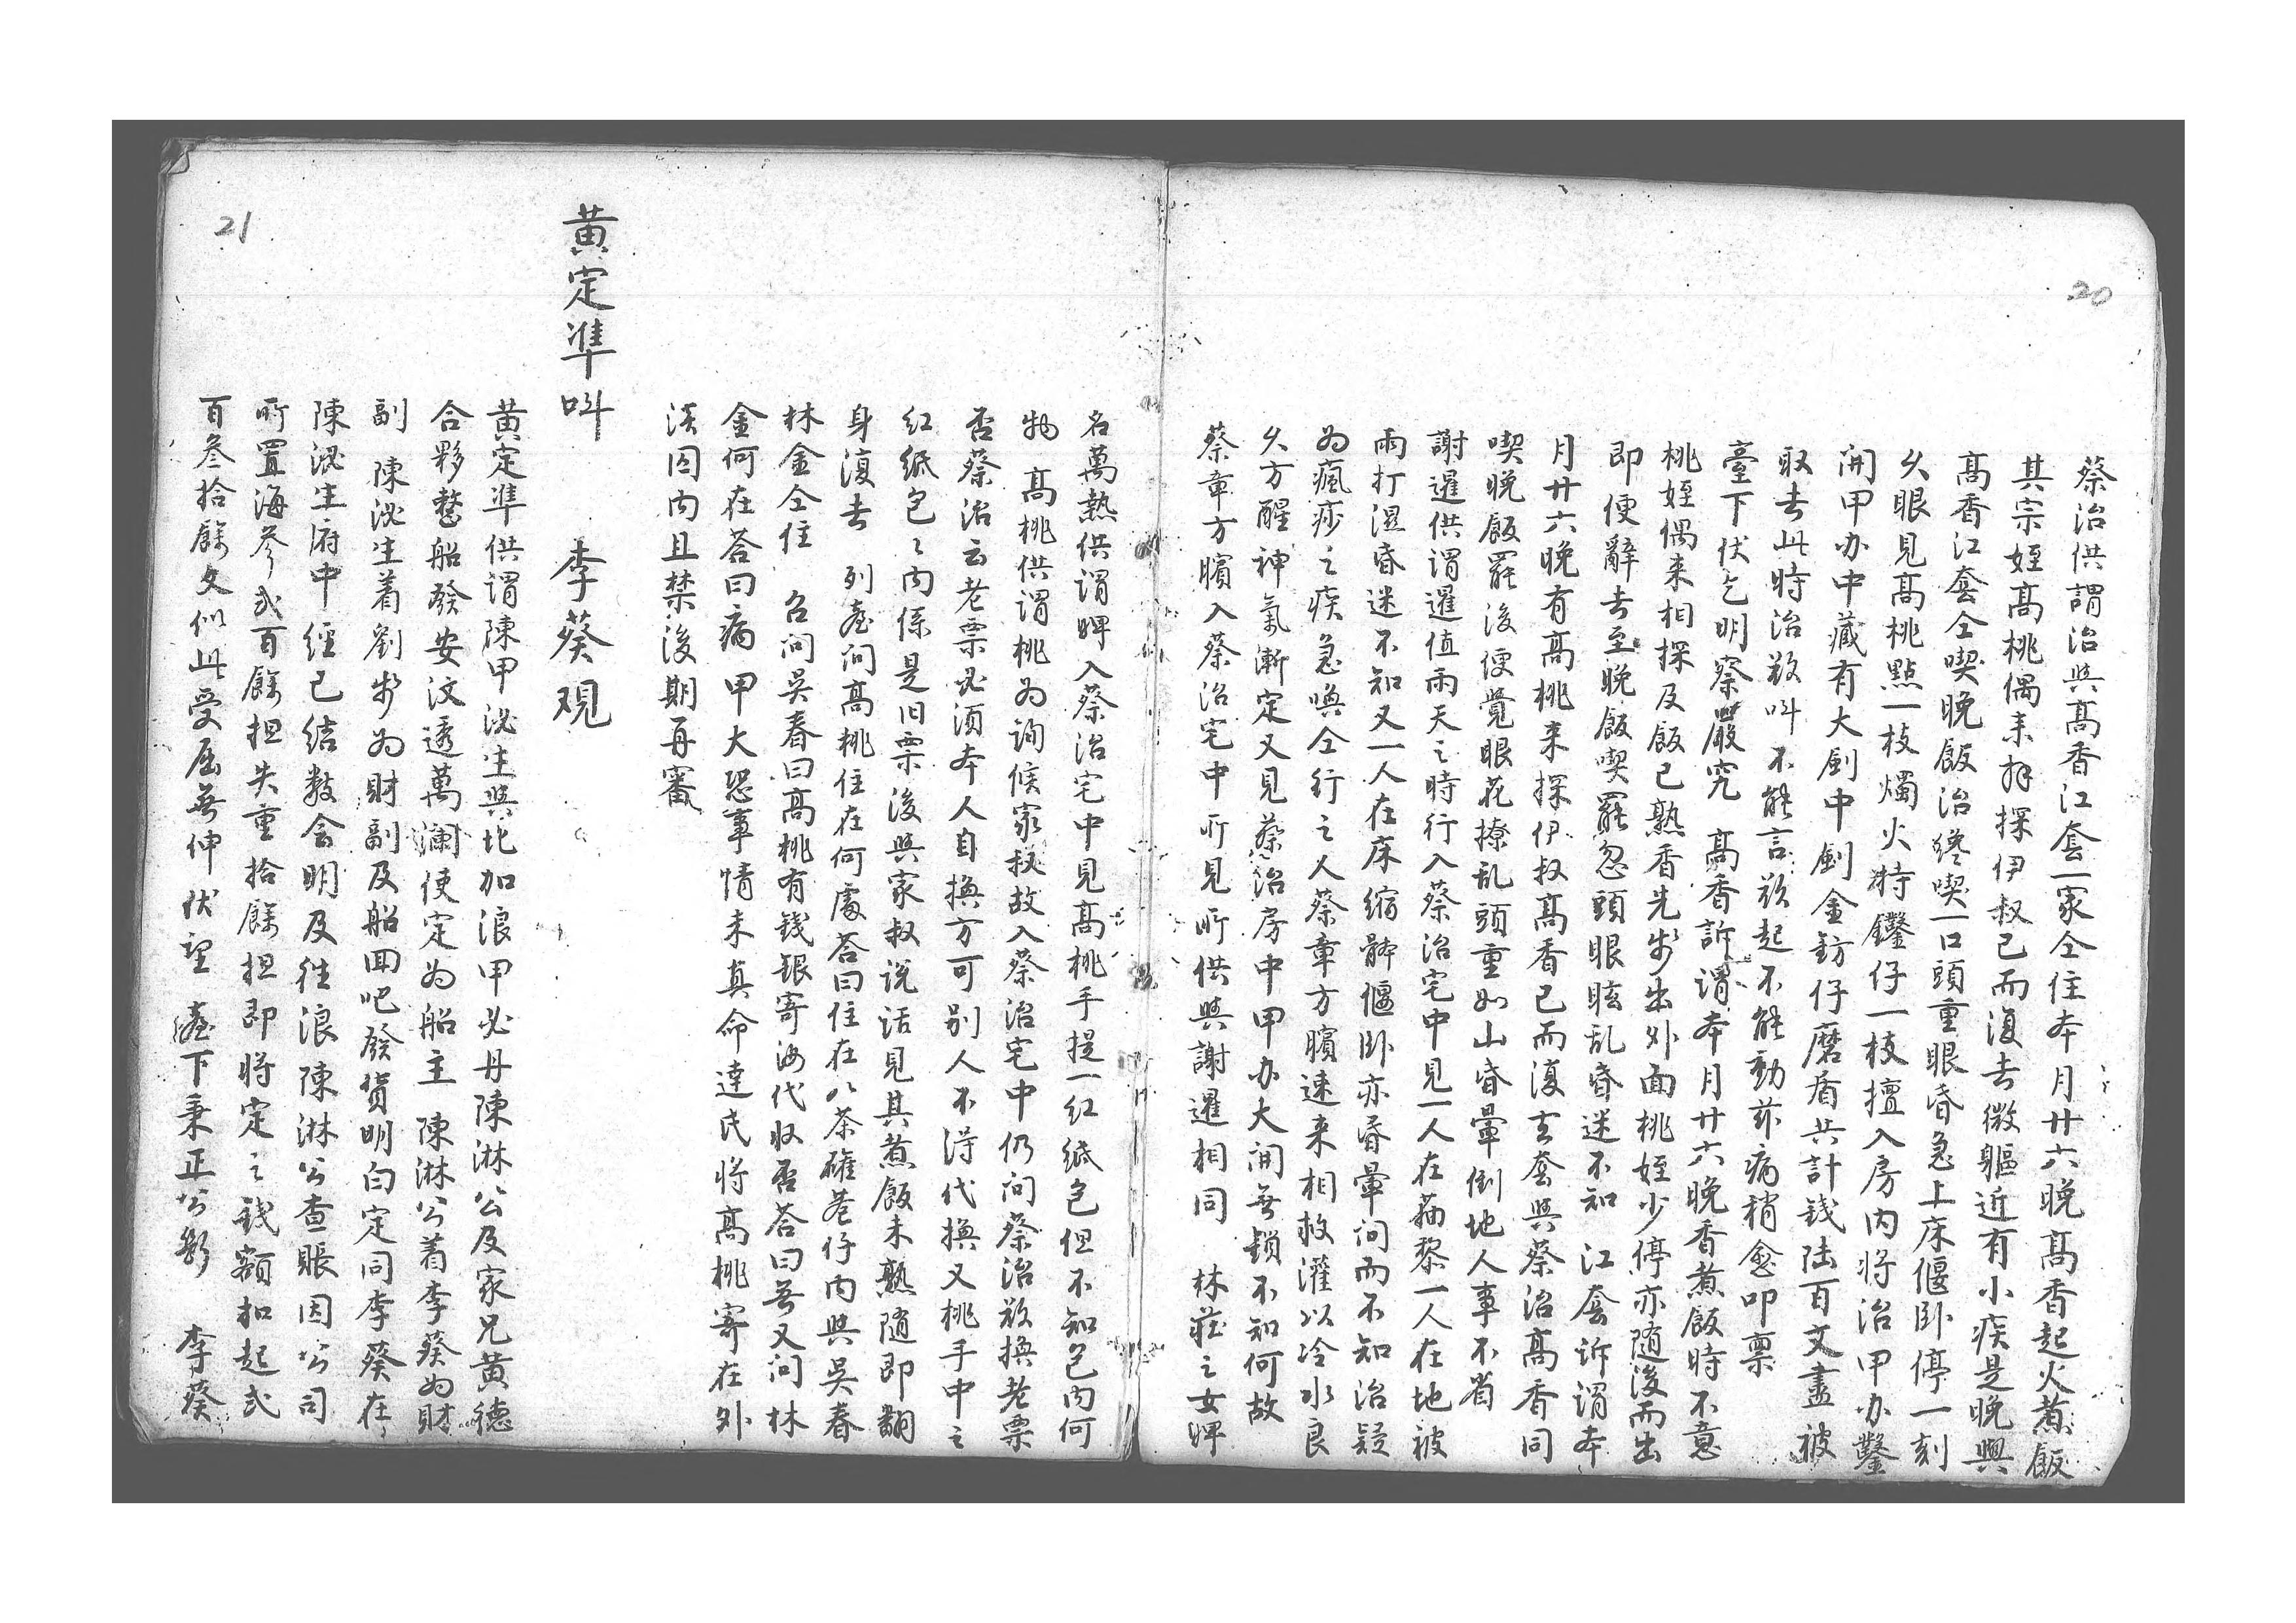 20
蔡治供謂治與髙香江套一家仝住本月廿六晚髙香起火煮飯
其宗姪髙桃偶来拜探伊叔已而復去微軀近有小疾是晚與
髙香江套仝喫晚飯治纔喫一口頭重眼昏急上床偃卧停一刻
久眼見髙桃點一枝燭火特鑽仔一枝擅入房内将治甲办鑿
開甲办中藏有大釗中釗金鈁仔磨盾共計錢陆百文盡被
取去此時治敖呌不能言欲起不能動兹病稍愈叩禀
臺下伏乞明察嚴究　髙香訴謂本月廿六晚香煮飯時不意
桃姪偶来相探及飯已熟香先步出外面桃姪少停亦随後而出
即便辭去至晚飯喫罷忽頭眼眩乱昏迷不知　江套訴謂本
月廿六晚有髙桃来探伊叔髙香已而復去套與蔡治髙香同
喫晚飯罷後便覺眼花撩乱頭重如山昏暈倒地人事不省
謝暹供謂暹值雨天之時行入蔡治宅中見一人在蒱黎一人在地被
雨打濕昏迷不知又一人在床縮骵偃卧亦昏暈问而不知治疑
为瘋痧之疾急喚仝行之人蔡章方臏速来相救灌以冷水良
久方醒神氣漸定又見蔡治房中甲办大開無鎖不知何故
蔡章方臏入蔡治宅中所見所供與謝暹相同　林莊之女婢
名萬熟供謂婢入蔡治宅中見髙桃手提一红紙包但不知包内何
物　髙桃供謂桃为詢候家叔故入蔡治宅中仍问蔡治欲換老票
否蔡治云老票必須本人自換方可别人不得代換又桃手中之
红紙包〻内係是旧票後與家叔说话見其煮飯未熟随即翻
身復去　列臺问髙桃住在何處荅曰住在八茶礶巷仔内與吴春
林金仝住　召问吴春曰髙桃有錢銀寄汝代收否荅曰無又问林
金何在荅曰病甲大恐事情未真命達氏将髙桃寄在外
淡囚内且禁後期再審
黄定凖呌　李葵观
黄定凖供謂陳甲泌生與比加浪甲必丹陳淋公及家兄黄德
合夥整船發安汶透萬瀾使定为船主　陳淋公着李葵为財
副　陳泌生着劉步为財副及船囬吧發货明白定同李葵在
陳泌生府中經已结数会明及往浪陳淋公查賬因公司
所置海参弍百餘担失重拾餘担即将定之錢额扣起弍
百叁拾餘文似此受屈無伸伏望　臺下秉正公断　李葵
21